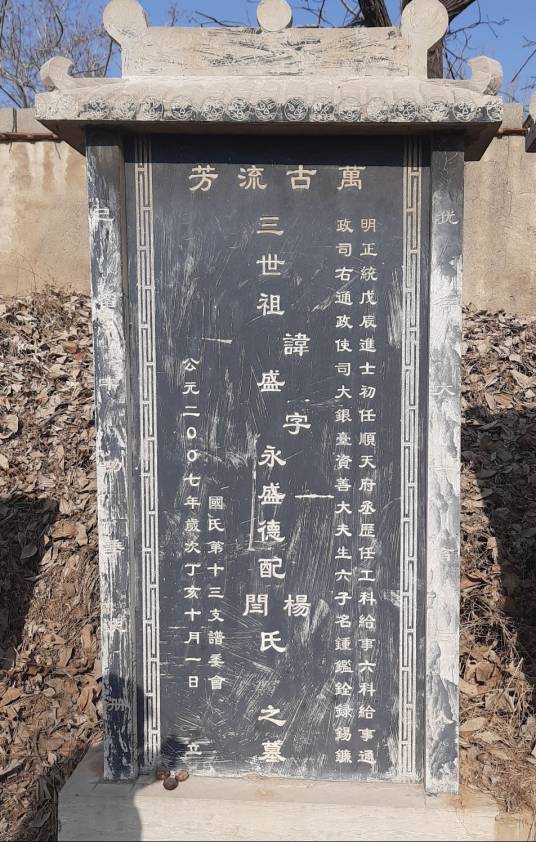 萬古流芳
明正統戊辰進士初任順天府丞歷任工科給事六科給事通
政司右通政使司大銀臺資善大夫生六子名鍾鑑銓録錫鐮
三世祖諱盛字永盛德配楊閆氏之墓
國氏第十三支譜委會
公元二00七年歲次丁亥十月一日 立